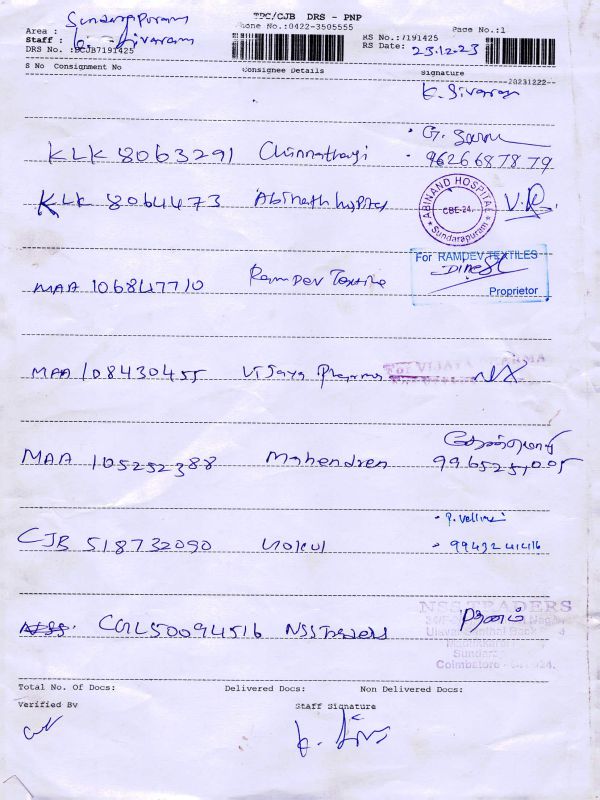 TPC/CJB DRS - PNP
Phone No.:0422-3505555
Page No.:1
Area : Sundarappuram
Staff : K. Sivaram
DRS No. :DCJB7191425
RS No.:7191425
RS Date: 23.12.23
S No Consignment No Consignee Details Signature
20231222
K. Sivaram
KLK 8063291 Chinnathayi 9626687879
KLK 8064473 Abinath hospital
ABINAND HOSPITAL
CBE-24.
Sundarapuram
V.R
MAA 106847710 Ramdev Textile
For RAMDEV TEXTILES
Dinesh
Proprietor
MAA 108430455 Vijaya Pharma
For VIJAYA PHARMA
MAA 105252388 Mahendren
CJB 518732090 Gokul
P. Vellini
99432 41416
CGL50094516 NSS Traders
NSS TRADERS
Coimbatore
Total No. Of Docs: Delivered Docs: Non Delivered Docs:
Verified By Staff Signature
K. Siva